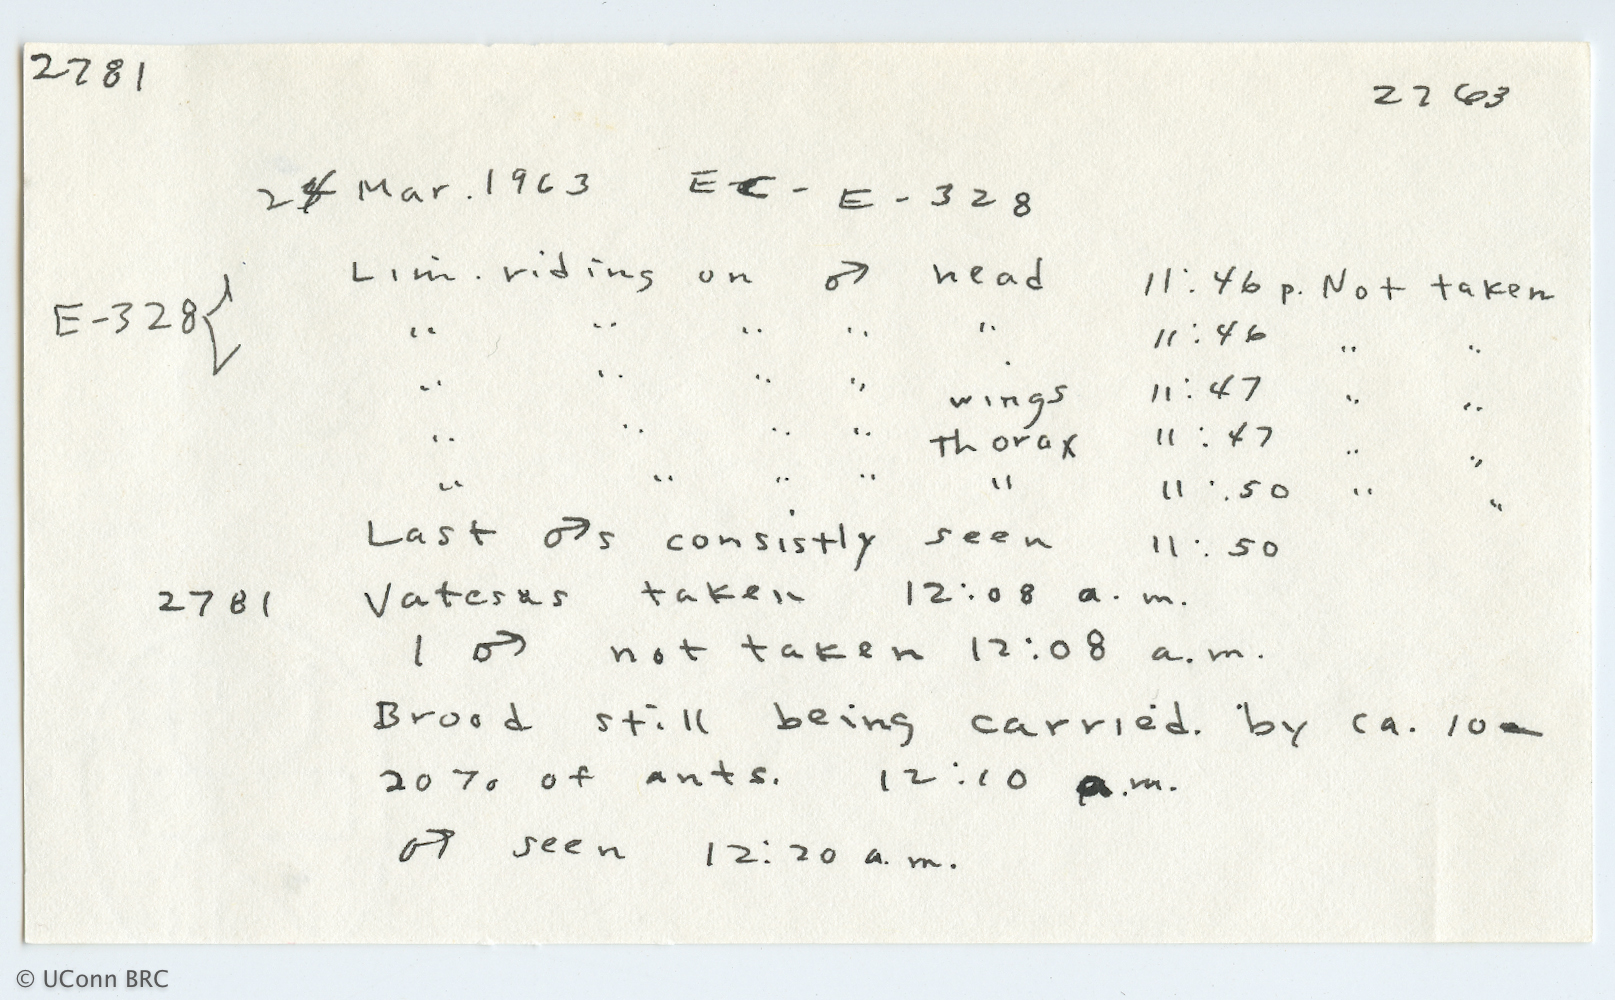 2781
2763
24 Mar. 1963 EC - E - 328
Lim. riding on ♂ head 11:46 p. Not taken
E-328 { " " " " " 11:46 " "
" " " " wings 11:47 " "
" " " " Thorax 11:47 " "
" " " " " 11:50 " "
Last ♂s consistly seen 11:50
2781 Vatesus taken 12:08 a.m.
1 ♂ not taken 12:08 a.m.
Brood still being carried. by ca. 10-
20% of ants. 12:10 a.m.
♂ seen 12:20 a.m.
© UConn BRC